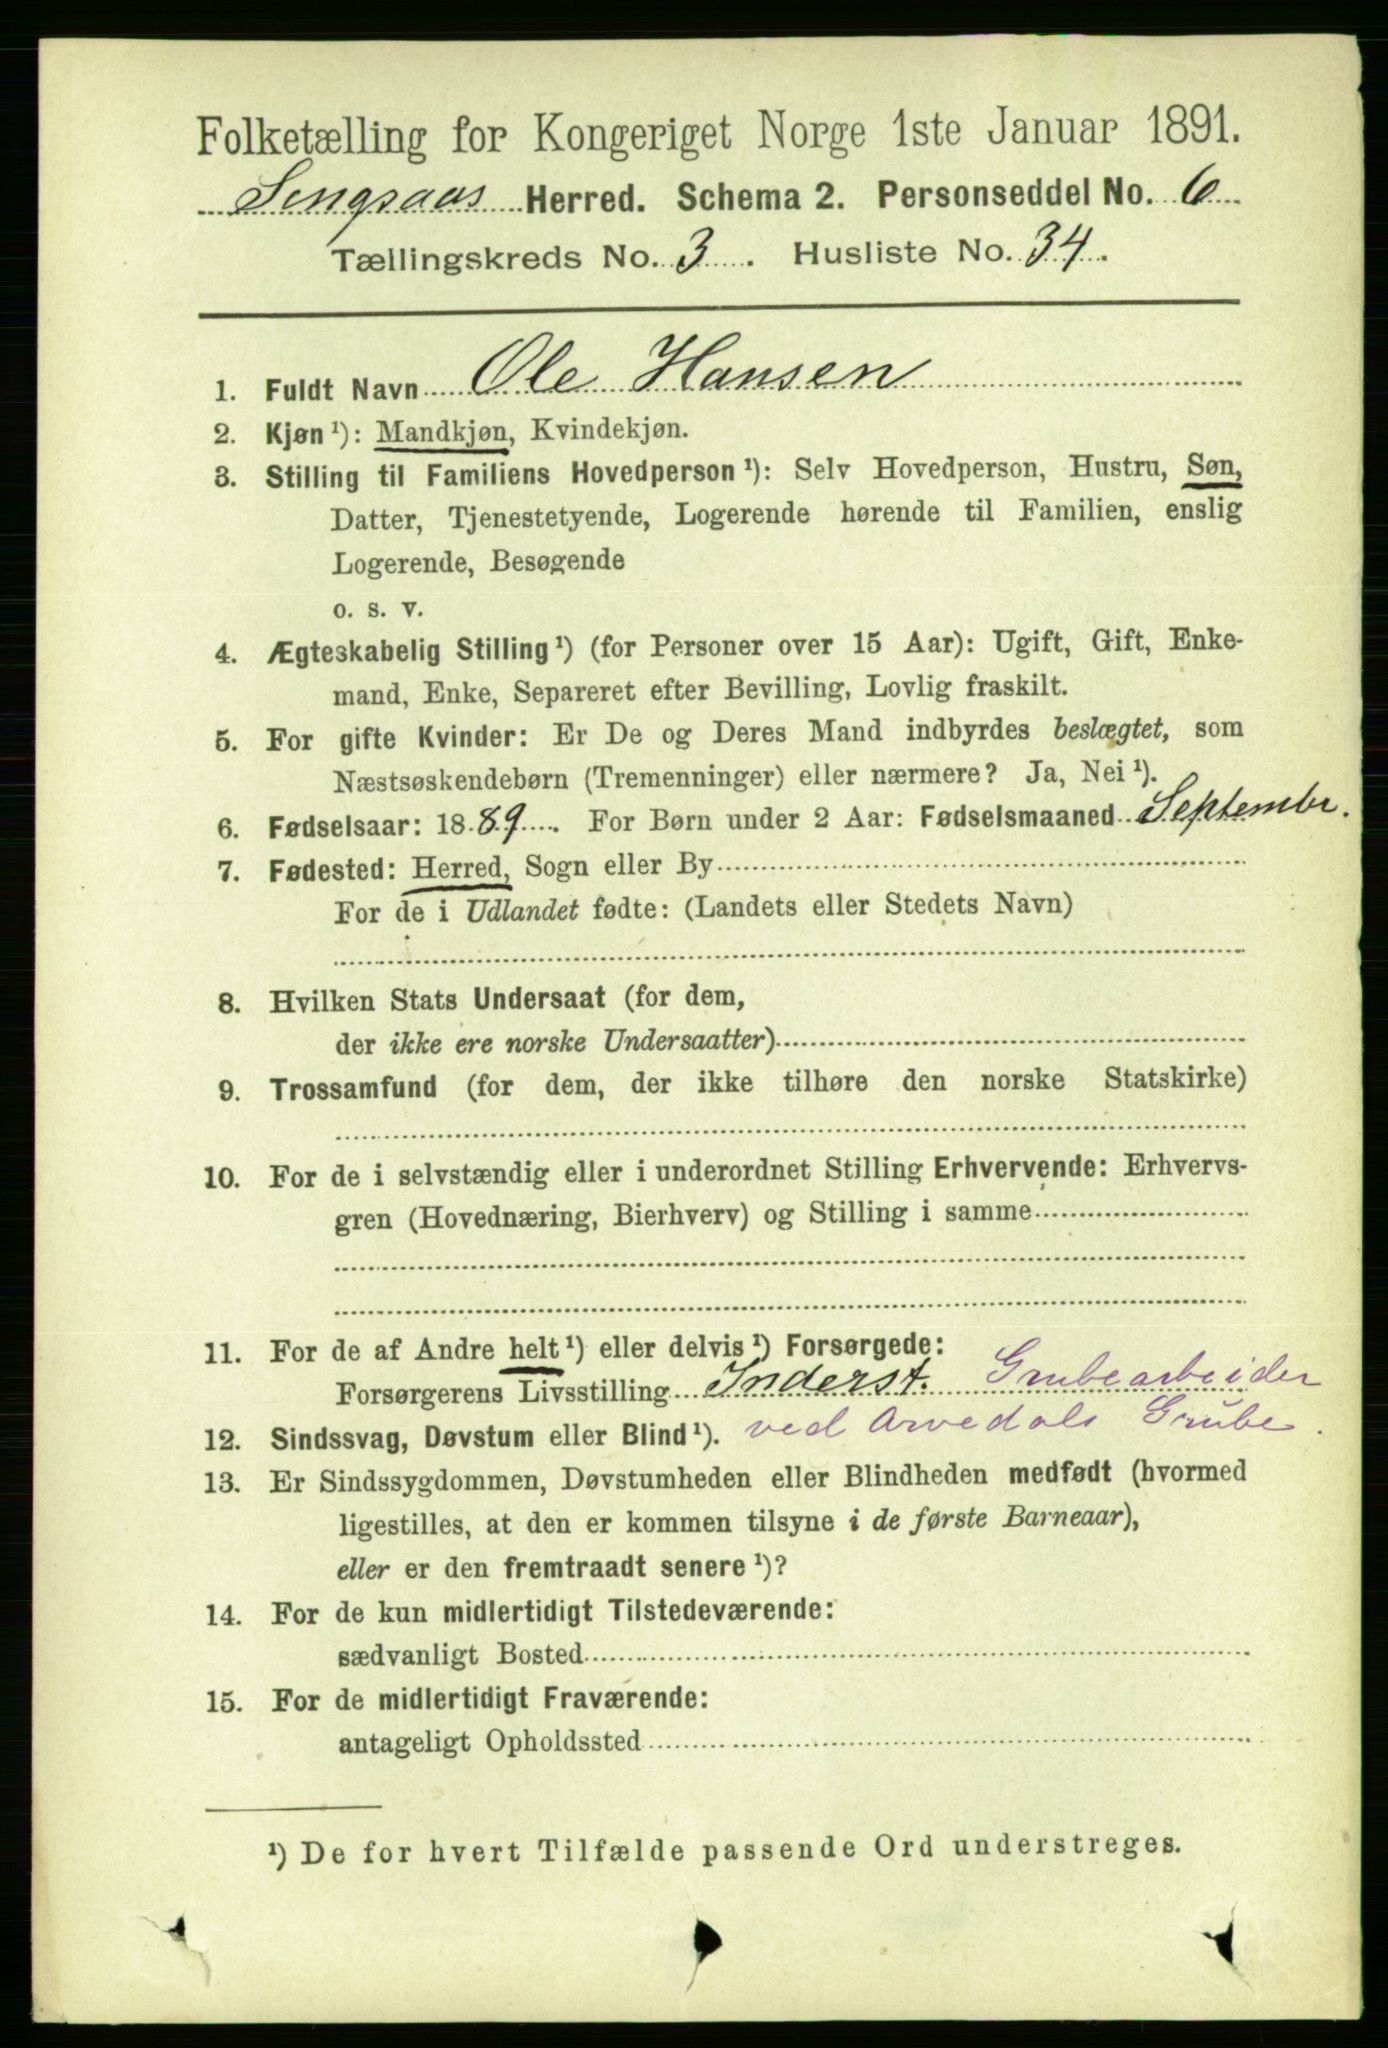 Folketælling for Kongeriget Norge 1ste Januar 1891.
Singsaas Herred. Schema 2. Personseddel No. 6
Tællingskreds No. 3. Husliste No. 34.
1. Fuldt Navn Ole Hansen
2. Kjøn ¹): Mandkjøn, Kvindekjøn.
3. Stilling til Familiens Hovedperson ¹): Selv Hovedperson, Hustru, Søn,
Datter, Tjenestetyende, Logerende hørende til Familien, enslig
Logerende, Besøgende
o. s. v.
4. Ægteskabelig Stilling ¹) (for Personer over 15 Aar): Ugift, Gift, Enke-
mand, Enke, Separeret efter Bevilling, Lovlig fraskilt.
5. For gifte Kvinder: Er De og Deres Mand indbyrdes beslægtet, som
Næstsøskendebørn (Tremenninger) eller nærmere? Ja, Nei ¹).
6. Fødselsaar: 1889. For Børn under 2 Aar: Fødselsmaaned Septembr.
7. Fødested: Herred, Sogn eller By
For de i Udlandet fødte: (Landets eller Stedets Navn)
8. Hvilken Stats Undersaat (for dem,
der ikke ere norske Undersaatter)
9. Trossamfund (for dem, der ikke tilhøre den norske Statskirke)
10. For de i selvstændig eller i underordnet Stilling Erhvervende: Erhvervs-
gren (Hovednæring, Bierhverv) og Stilling i samme
11. For de af Andre helt ¹) eller delvis ¹) Forsørgede:
Forsørgerens Livsstilling Inderst. Grubearbeider
12. Sindssvag, Døvstum eller Blind ¹). ved Arvedals Grube.
13. Er Sindssygdommen, Døvstumheden eller Blindheden medfødt (hvormed
ligestilles, at den er kommen tilsyne i de første Barneaar),
eller er den fremtraadt senere ¹)?
14. For de kun midlertidigt Tilstedeværende:
sædvanligt Bosted
15. For de midlertidigt Fraværende:
antageligt Opholdssted
¹) De for hvert Tilfælde passende Ord understreges.